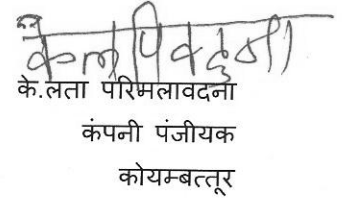 के.लता परिमलावदना
कंपनी पंजीयक
कोयम्बत्तूर